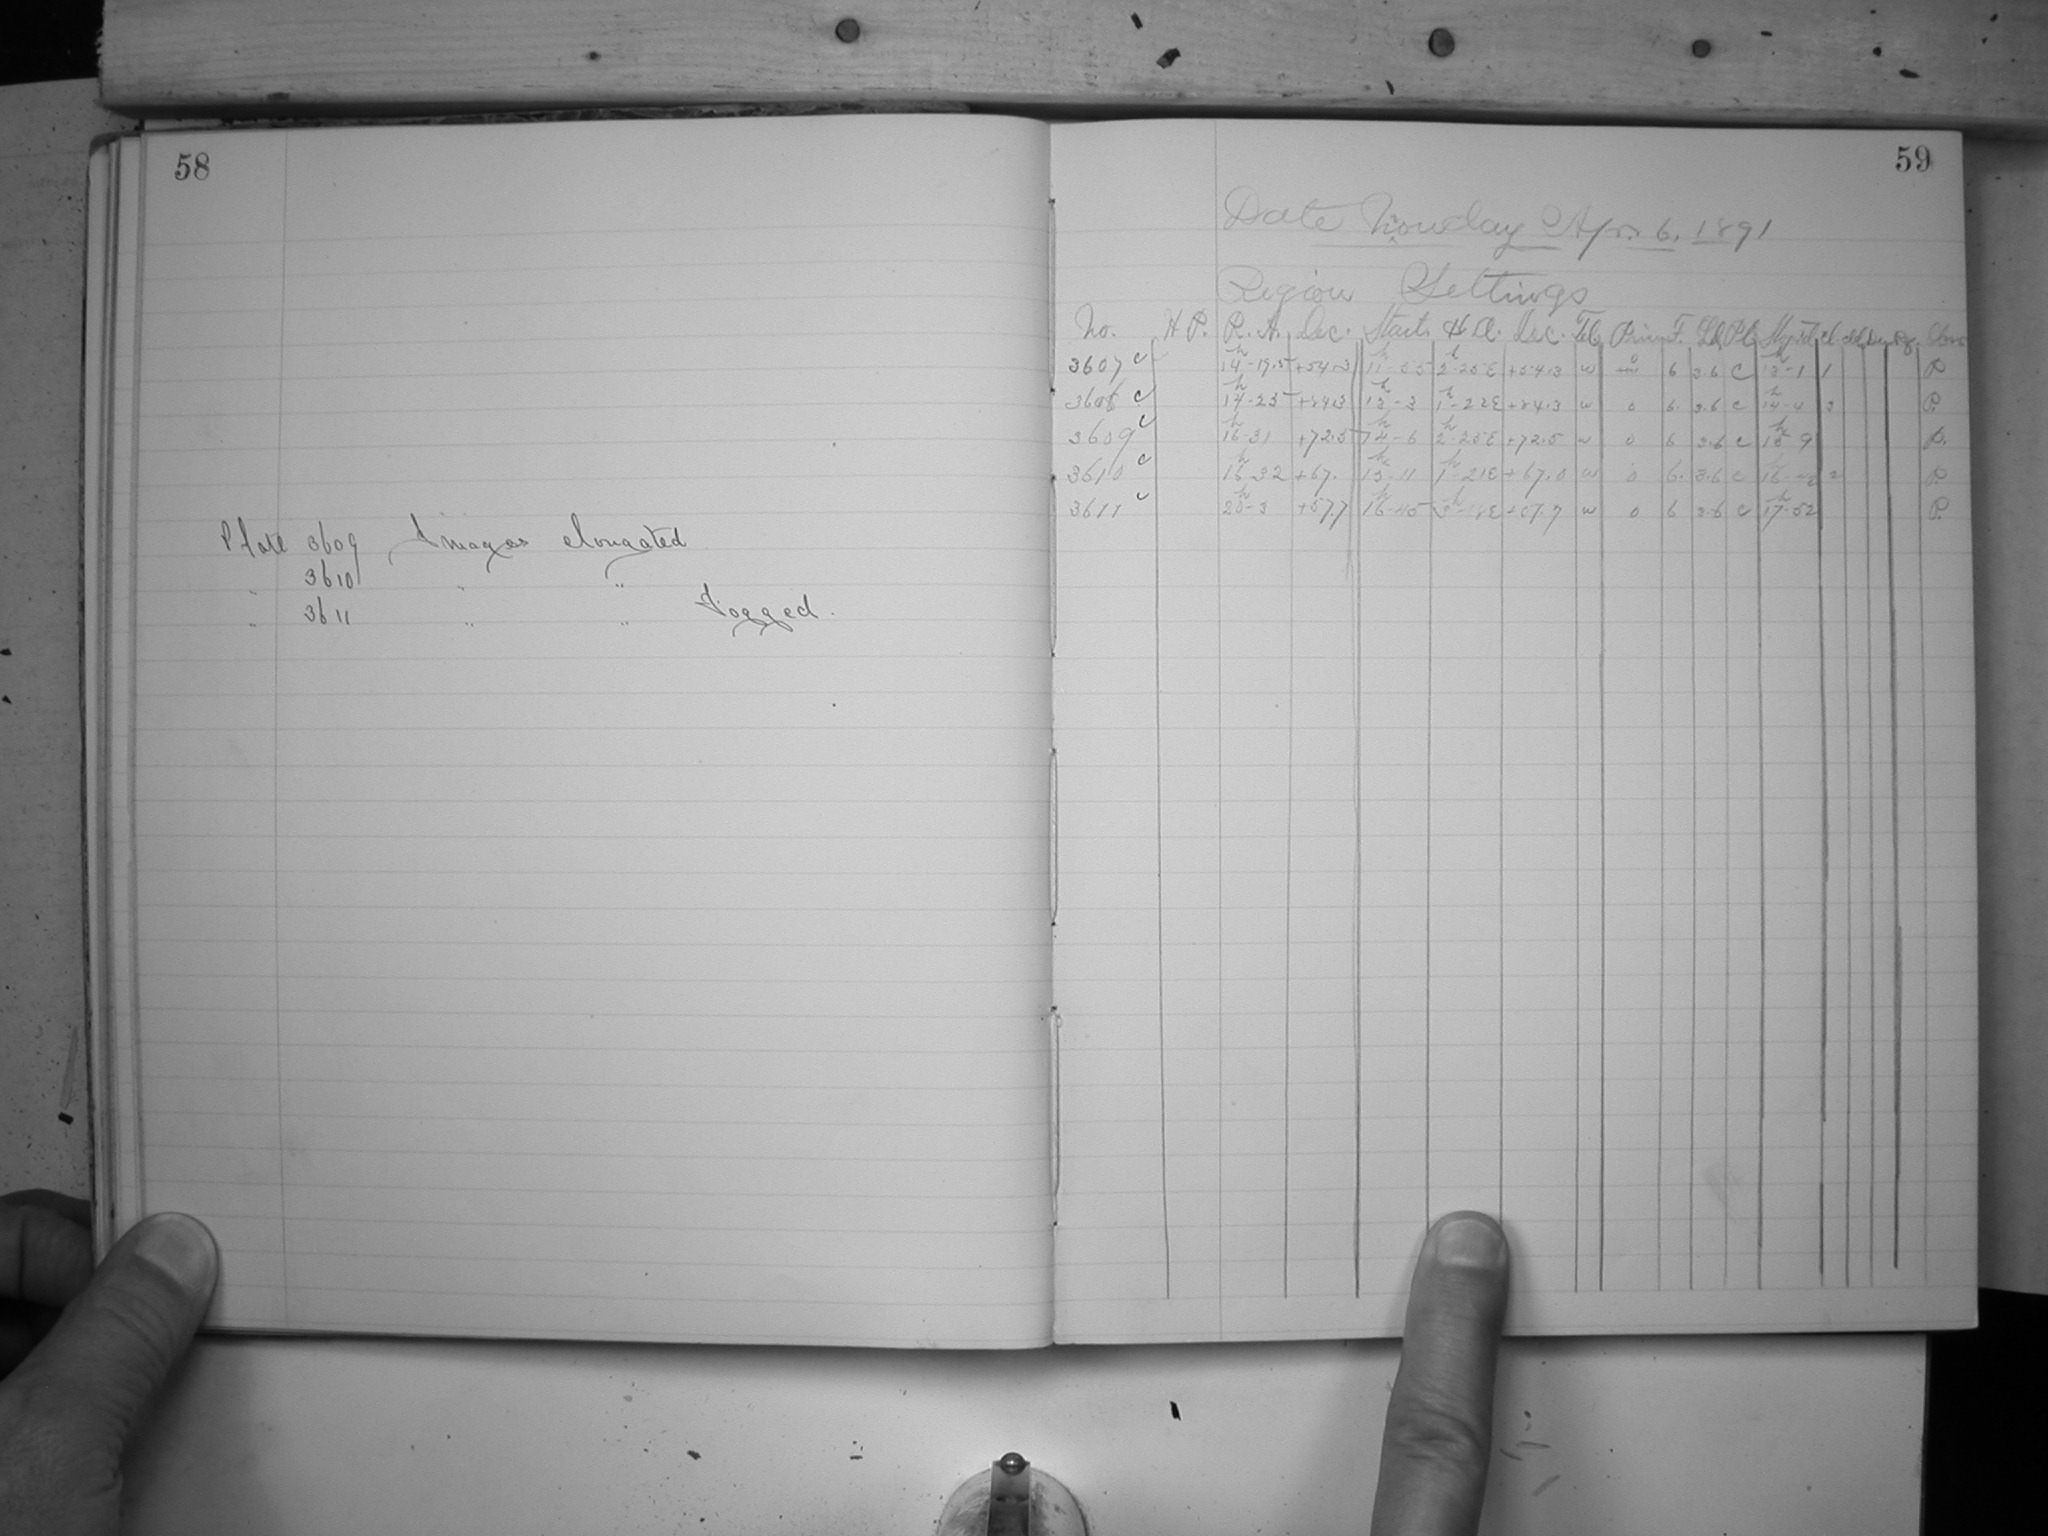 58
Plate 3609 Images elongated
" 3610 " "
" 3611 " " fogged.
59
Date Monday Apr. 6, 1891
Region Settings
No. H P. R. A. Dec. Start. H. A. Dec. F. Pl. Obs.
3607 c 14-19.5 +54.3 2-25E +54.3 w 0 6 3.6 C 13-1 1 P.
3608 c 14-25 +54.3 13-3 1-22E +54.3 w 0 6. 3.6 c 14-4 P.
3609 c 16-31 +72.5 14-6 2-25E +72.5 w 0 6 3.6 c 15-9 P.
3610 c 16-32 +67. 15-11 1-21E +67.0 w 0 6. 3.6 c 2 P.
3611 c 20-3 +57.7 16-45 +57.7 w 0 6 3.6 c 17-52 P.